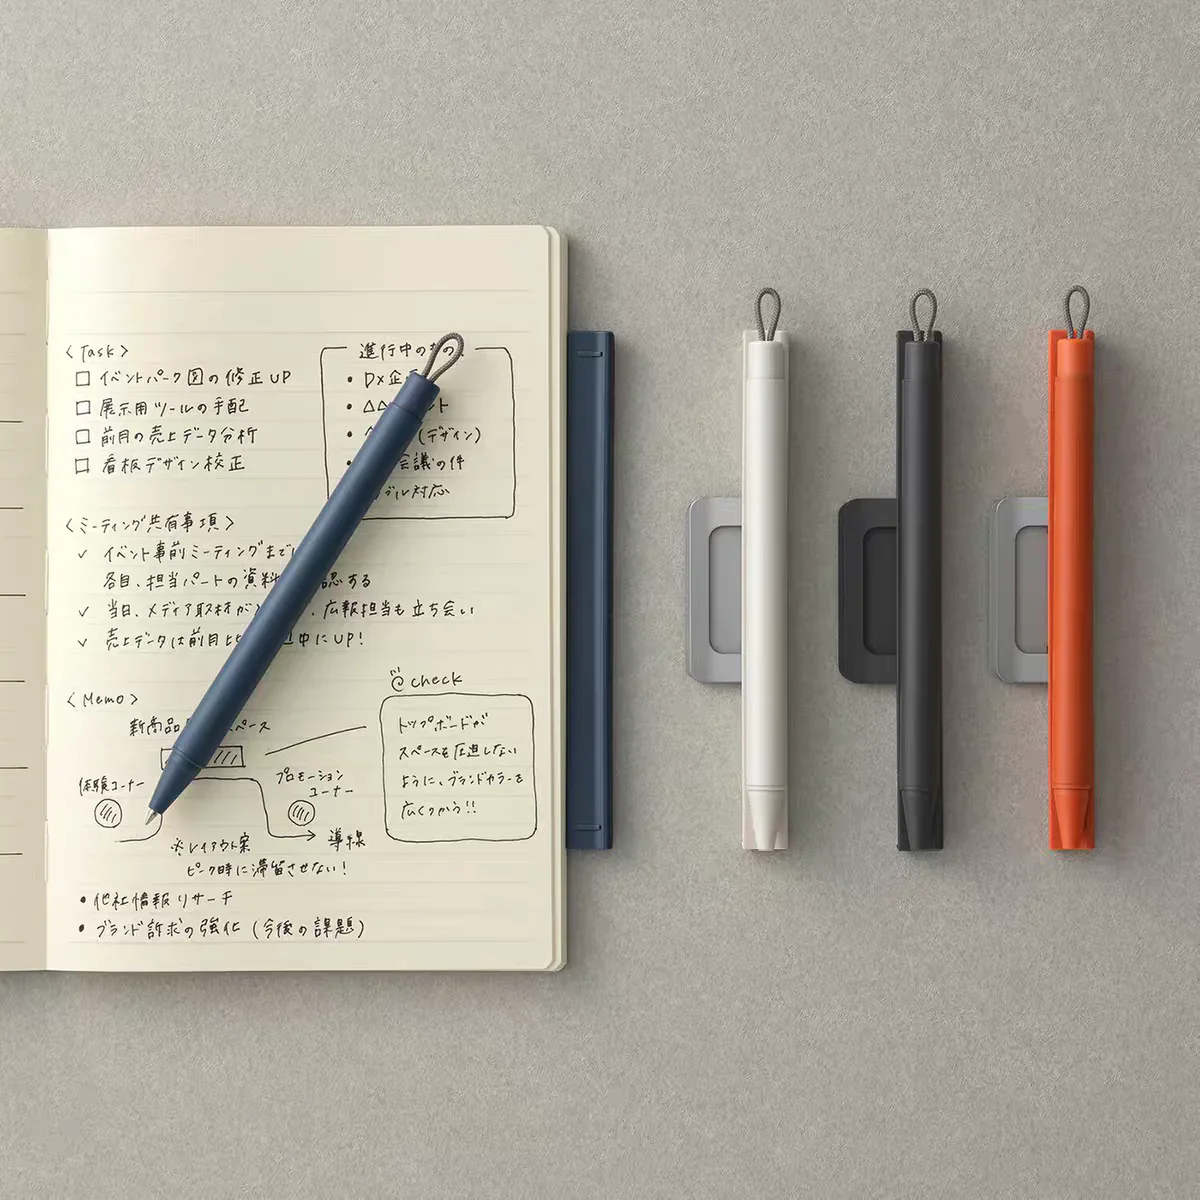 <Task>
□ イベントパーク図の修正UP
□ 展示用ツールの手配
□ 前月の売上データ分析
□ 看板デザイン校正
進行中のもの
• DX企
• △△ント
• (デザイン)
会議の件
ブル対応
<ミーティング共有事項>
✓ イベント事前ミーティングまでに
各自、担当パートの資料 認する
✓ 当日、メディア取材が 、広報担当も立ち会い
✓ 売上データは前月比 週中にUP!
<Memo>
新商品 スペース
体験コーナー
プロモーション
コーナー
導線
※レイアウト案
ピーク時に滞留させない!
@check
トップボードが
スペースを圧迫しない
ように、ブランドカラーを
広くつかう!!
• 他社情報リサーチ
• ブランド訴求の強化(今後の課題)